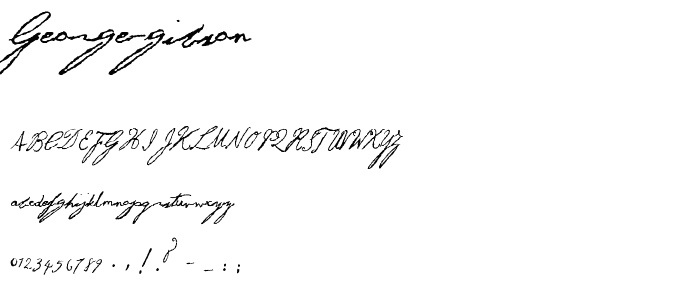 George-gibson
ABCDEFGHIJKLMNOPQRSTUVWXYZ
abcdefghijklmnopqrstuvwxyz
0123456789 . , ! . ? - _ : ;